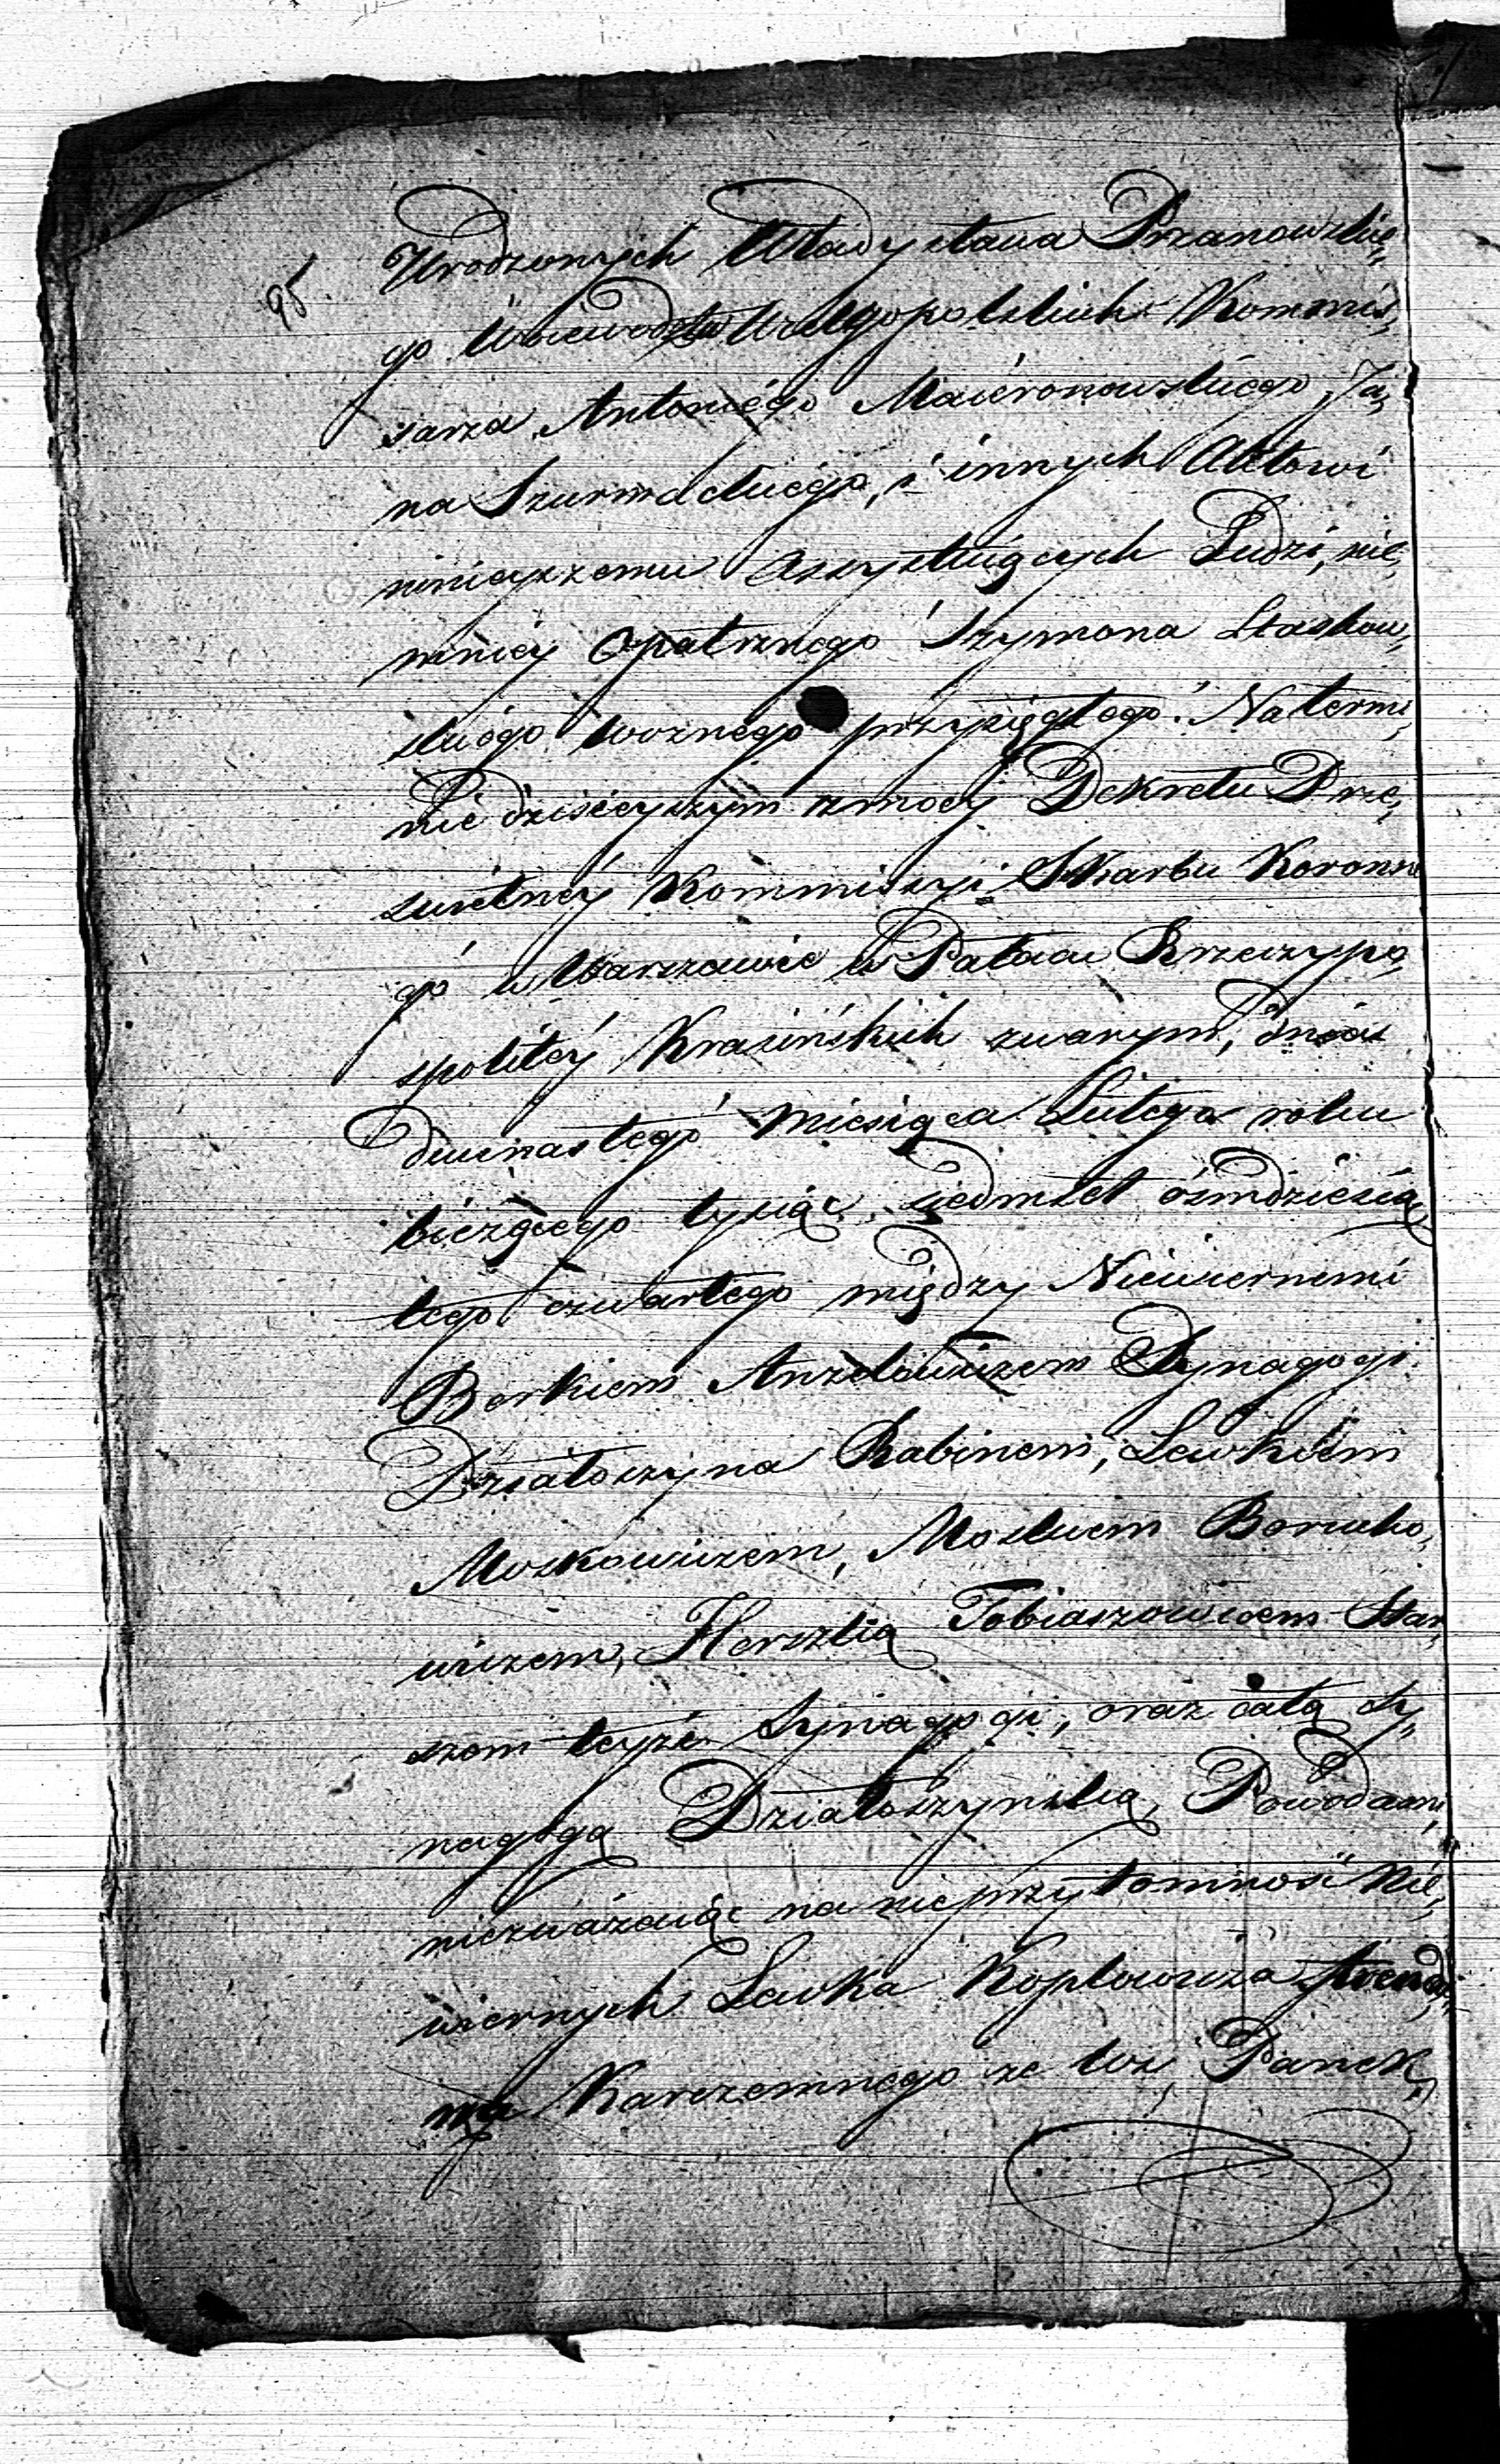 95.
Urodzonych Władysława Przanowskie„
go Woiewodztw Wielgopolskich Kommis„
sarza Antoniégo Macieronowskiégo, Ja„
na Szurmockiego, i innych Aktowi
ninieyszemu assystuiących Ludzi, nie„
mniey Opatrznego Szymona Staskow„
skiégo woznego przysięgłego. Na termi„
nie dzisieyszym z mocy Dekretu Prze„
swietnéy Kommissyi Skarbu Koronne
go w Warszawie w Pałacu Rzeczypo„
spolitéy Krasińskich zwanym, dnia
dwunastego Miesiąca Lutego roku
bieżącego tysiąc siedmset ośmdziesią
tego czwartego między Niewiernemi
Berkiem Anzelowiczem Synagogi
Działoszyna Rabinem, Lewkiem
Moszkowiczem, Moskiem Borucho„
wiczem, Herszlią Tobiaszowiczem Star„
szem teyże Synagogi, oraz całą Sy„
nagogą Działoszyńską, Powodami,
niezważaiąc na nieprzytomność Nie„
wiernych Lewka Koplowicza Arenda„
rza Karczemnego ze wsi Panek,